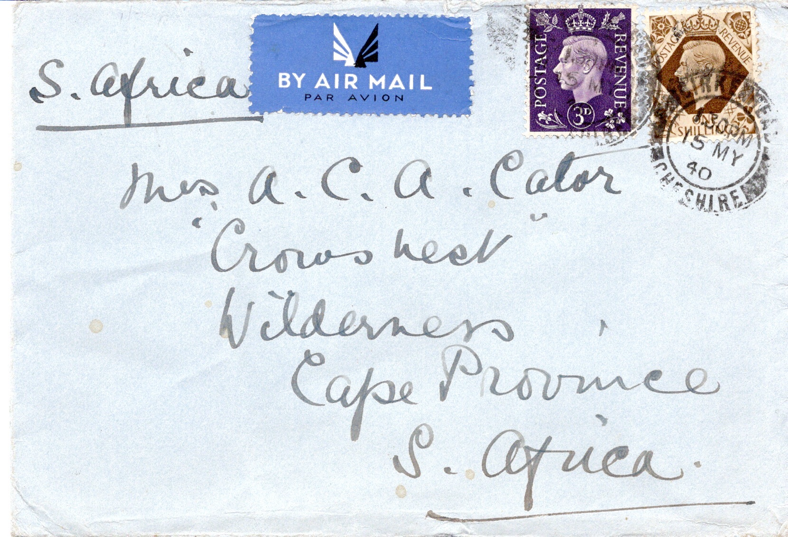 S. Africa
BY AIR MAIL
PAR AVION
POSTAGE REVENUE
3D
POSTAGE REVENUE
SHILLING
15 MY
40
CHESHIRE
Mrs. A. C. A. Cator
"Crows nest"
Wilderness
Cape Province
S. Africa.